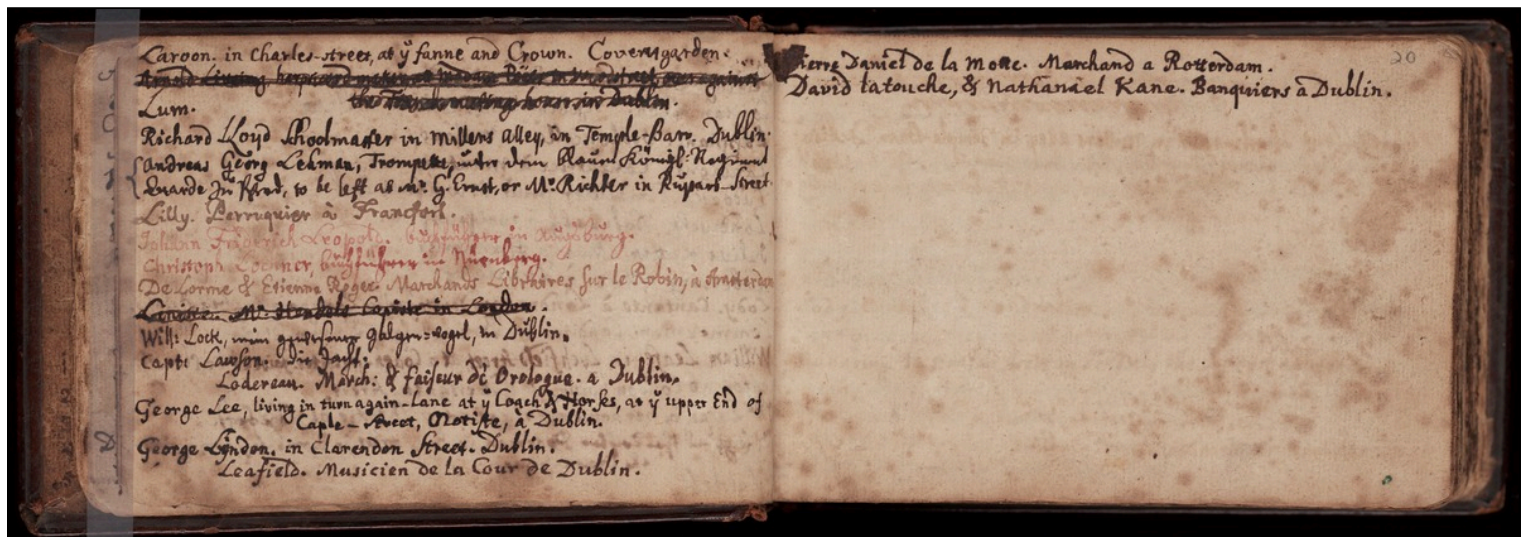 Laroon. in Charles-street, at ÿ fanne and Crown. Coventgarden.
Arnold living, harpsicord maker at Madame in Woodstreet, over against
the meeting house in Dublin.
Lum.
Richard Lloyd Schoolmaster in Millens alley, in Temple-Barr. Dublin.
Andreas Georg Lehman, Trompette, unter dem blauen Königl: Regiment
Guarde zu Pferd, to be left at Mr. G. Ernst, or Mr. Richter in Rupart-Street.
Lilly. Perruquier à Francfort.
Johann Friderich Leopold. buchführer in Augsburg.
Christoph Lochner, buchführer in Nürnberg.
De Lorme & Etienne Roger. Marchands Libraires sur le Robin, à Amsterdam
Linike. Mr. Hendels Copiste in London.
Will: Lock, mein gewesener Galgen-vogel, in Dublin.
Capt: Lawson. die Jacht.
Lodereau. March: & faiseur de Orologue. a Dublin.
George Lee, living in turn again-lane at ÿ Coach & Horses, at ÿ upper End of
Caple-street, Notiste, à Dublin.
George Lÿndon. in Clarendon Street. Dublin.
Leafield. Musicien de la Cour de Dublin.
Pierre Daniel de la Motte. Marchand a Rotterdam.
20
David latouche, & Nathanael Kane. Banquiers à Dublin.